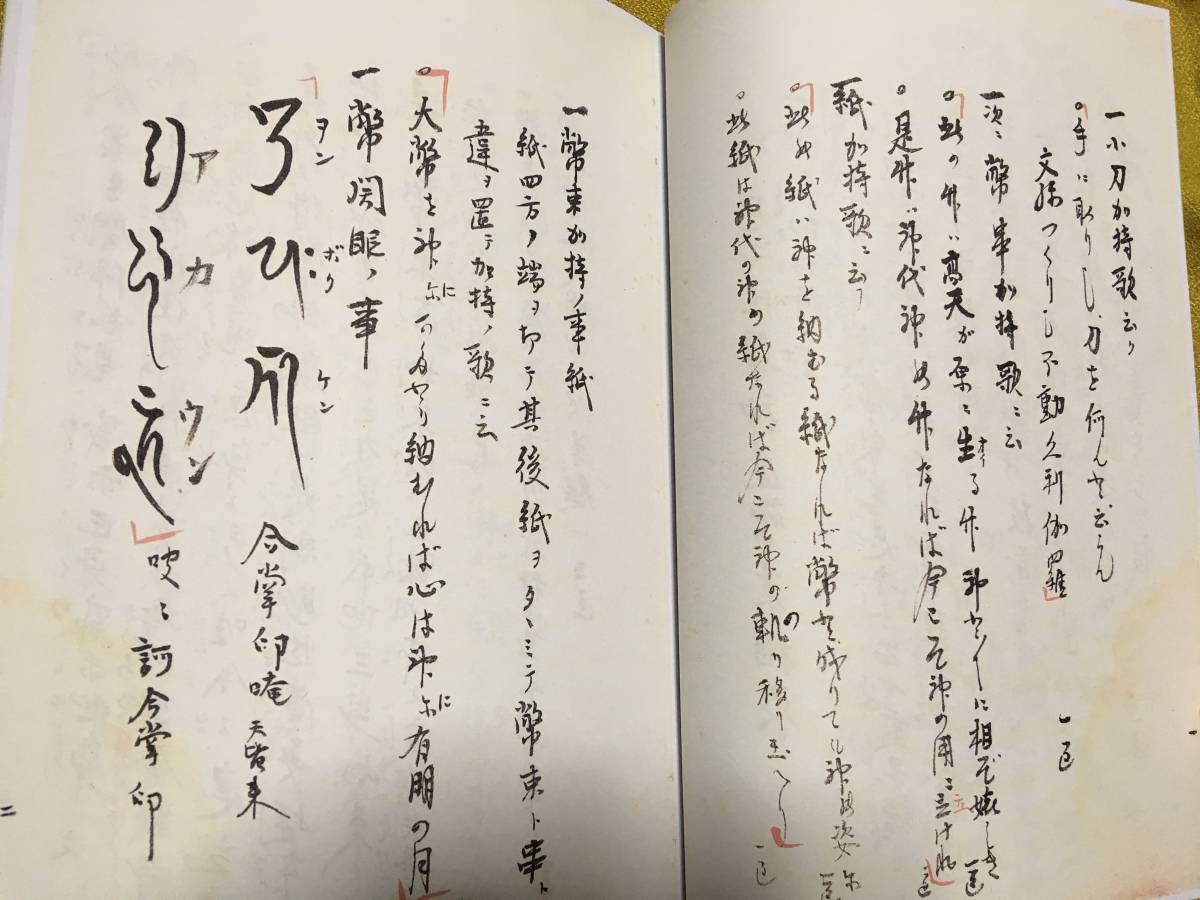 一小刀加持歌云ク
手に取りし刀を何んと云らん
文殊つくりし不動久利伽羅
一返
一次ニ幣串加持歌ニ云
此の竹ハ高天が原ニ生る竹神
オヘ
に相ぞ嬉しき
是竹ハ神代神の竹なれば今こそ神の用ニ立けれ
一紙加持歌ニ云ク
此の紙ハ神を納むる紙なれば幣と成りても神の姿
此紙は神代の神の紙なれば今こそ神の移り玉へ
一返
一幣束加持ノ事紙
紙四方ノ端ヲ切テ其後紙ヲタヽミテ幣束ト串ト
違ヲ置テ加持ノ歌ニ云
大幣を神に納むれば心は神に有明の月
一幣開眼ノ事
ヲン
ボク
ケン
合掌印唵
ア
カ
ウン
吠ニ訶合掌印
二